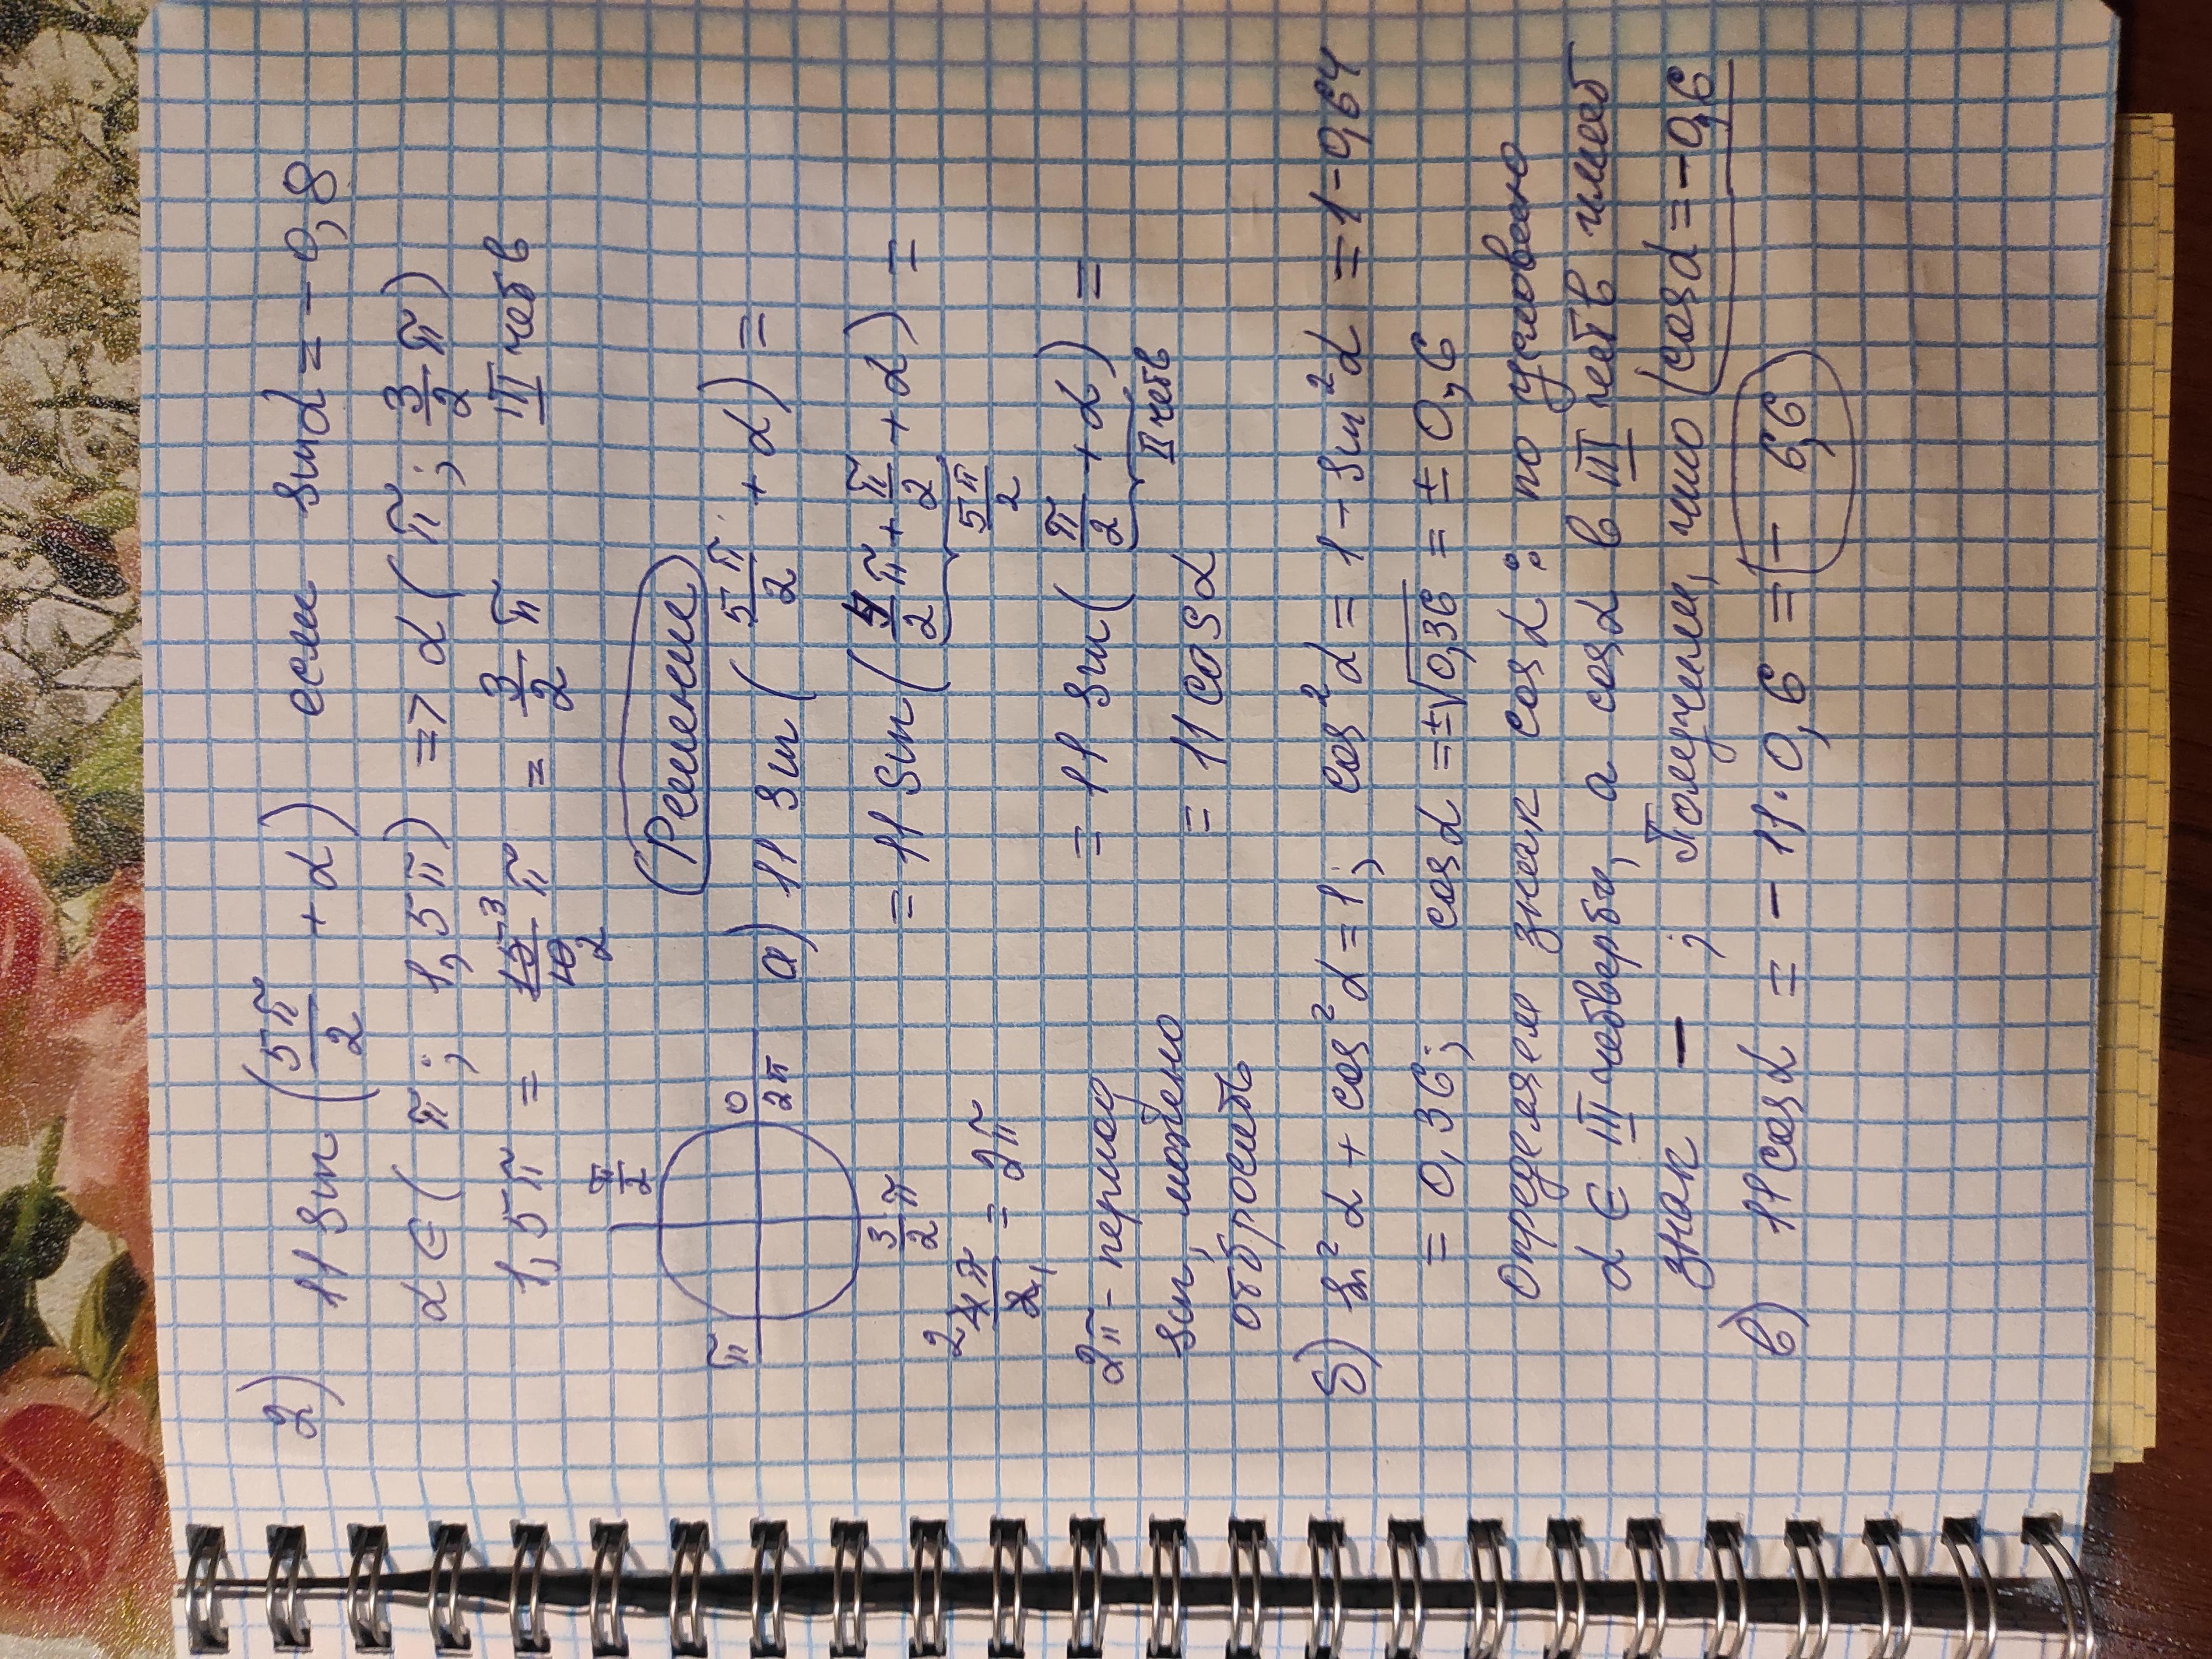 2) 11 sin (5π/2 + α) если sinα = -0,8
α ∈ (π; 1,5π) => α (π; 3/2 π)
1,5π = 15 3/10 2 π = 3/2 π III четв
π/2
Решение
π 0
2π
3/2 π
а) 11 sin (5/2 π + α) =
= 11 sin (4/2 π + π/2 + α) =
5π/2
2 4π/2 1 = 2π
= 11 sin (π/2 + α) =
II четв
2π - период
sin, можно
отбросить
= 11 cosα
б) sin²α + cos²α = 1; cos²α = 1 - sin²α = 1 - 0,64
= 0,36; cosα = ±√0,36 = ± 0,6
Определяем знак cosα: по условию
α ∈ III четверти, а cosα в III четв имеет
знак - ; Получим, что cosα = -0,6
в) 11cosα = - 11·0,6 = - 6,6